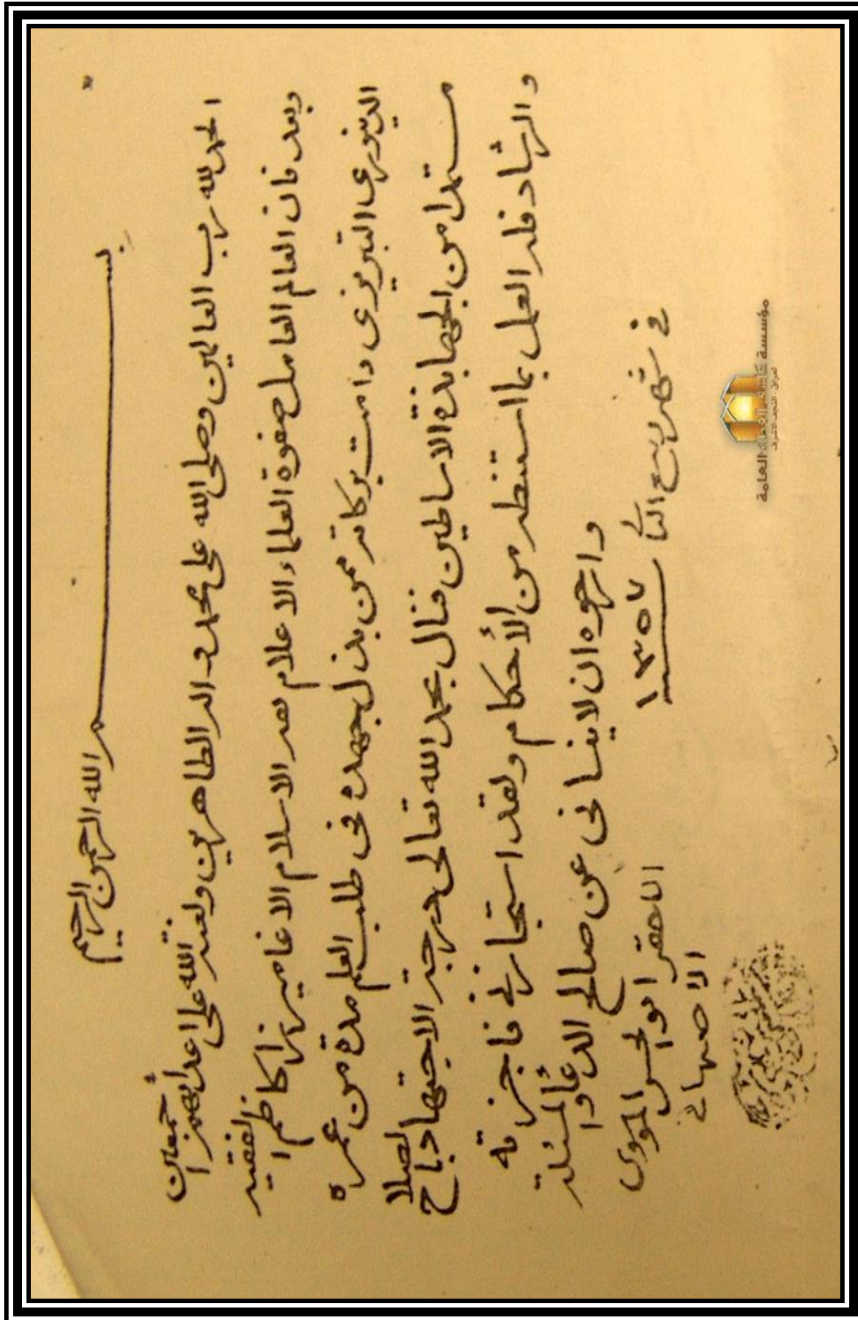 بسم الله الرحمن الرحيم
الحمد لله رب العالمين وصلى الله على محمد واله الطاهرين ولعنة الله على اعدائهم اجمعين
وبعد فان العالم العامل صفوة العلماء الاعلام الاسلام الاغا ميرزا كاظم الفقيه
الدينوري التبريزي دامت بركاته ممن بذل جهده فى طلب العلم مدة من عمره
مستمدا من الجهابذة الاساطين فنال بحمد الله تعالى درجة الاجتهاد
والرشاد فله العمل بما استنظره من الأحكام ولقد استجازنى فاجزته
وارجوه ان لا ينسانى عن صالح الدعاء
فى شهر ربيع الثانى ١٣٥٧
الاحقر ابو الحسن الموسوى
الاصفهانى
مؤسسة كاشف الغطاء العامة
العراق - النجف الاشرف